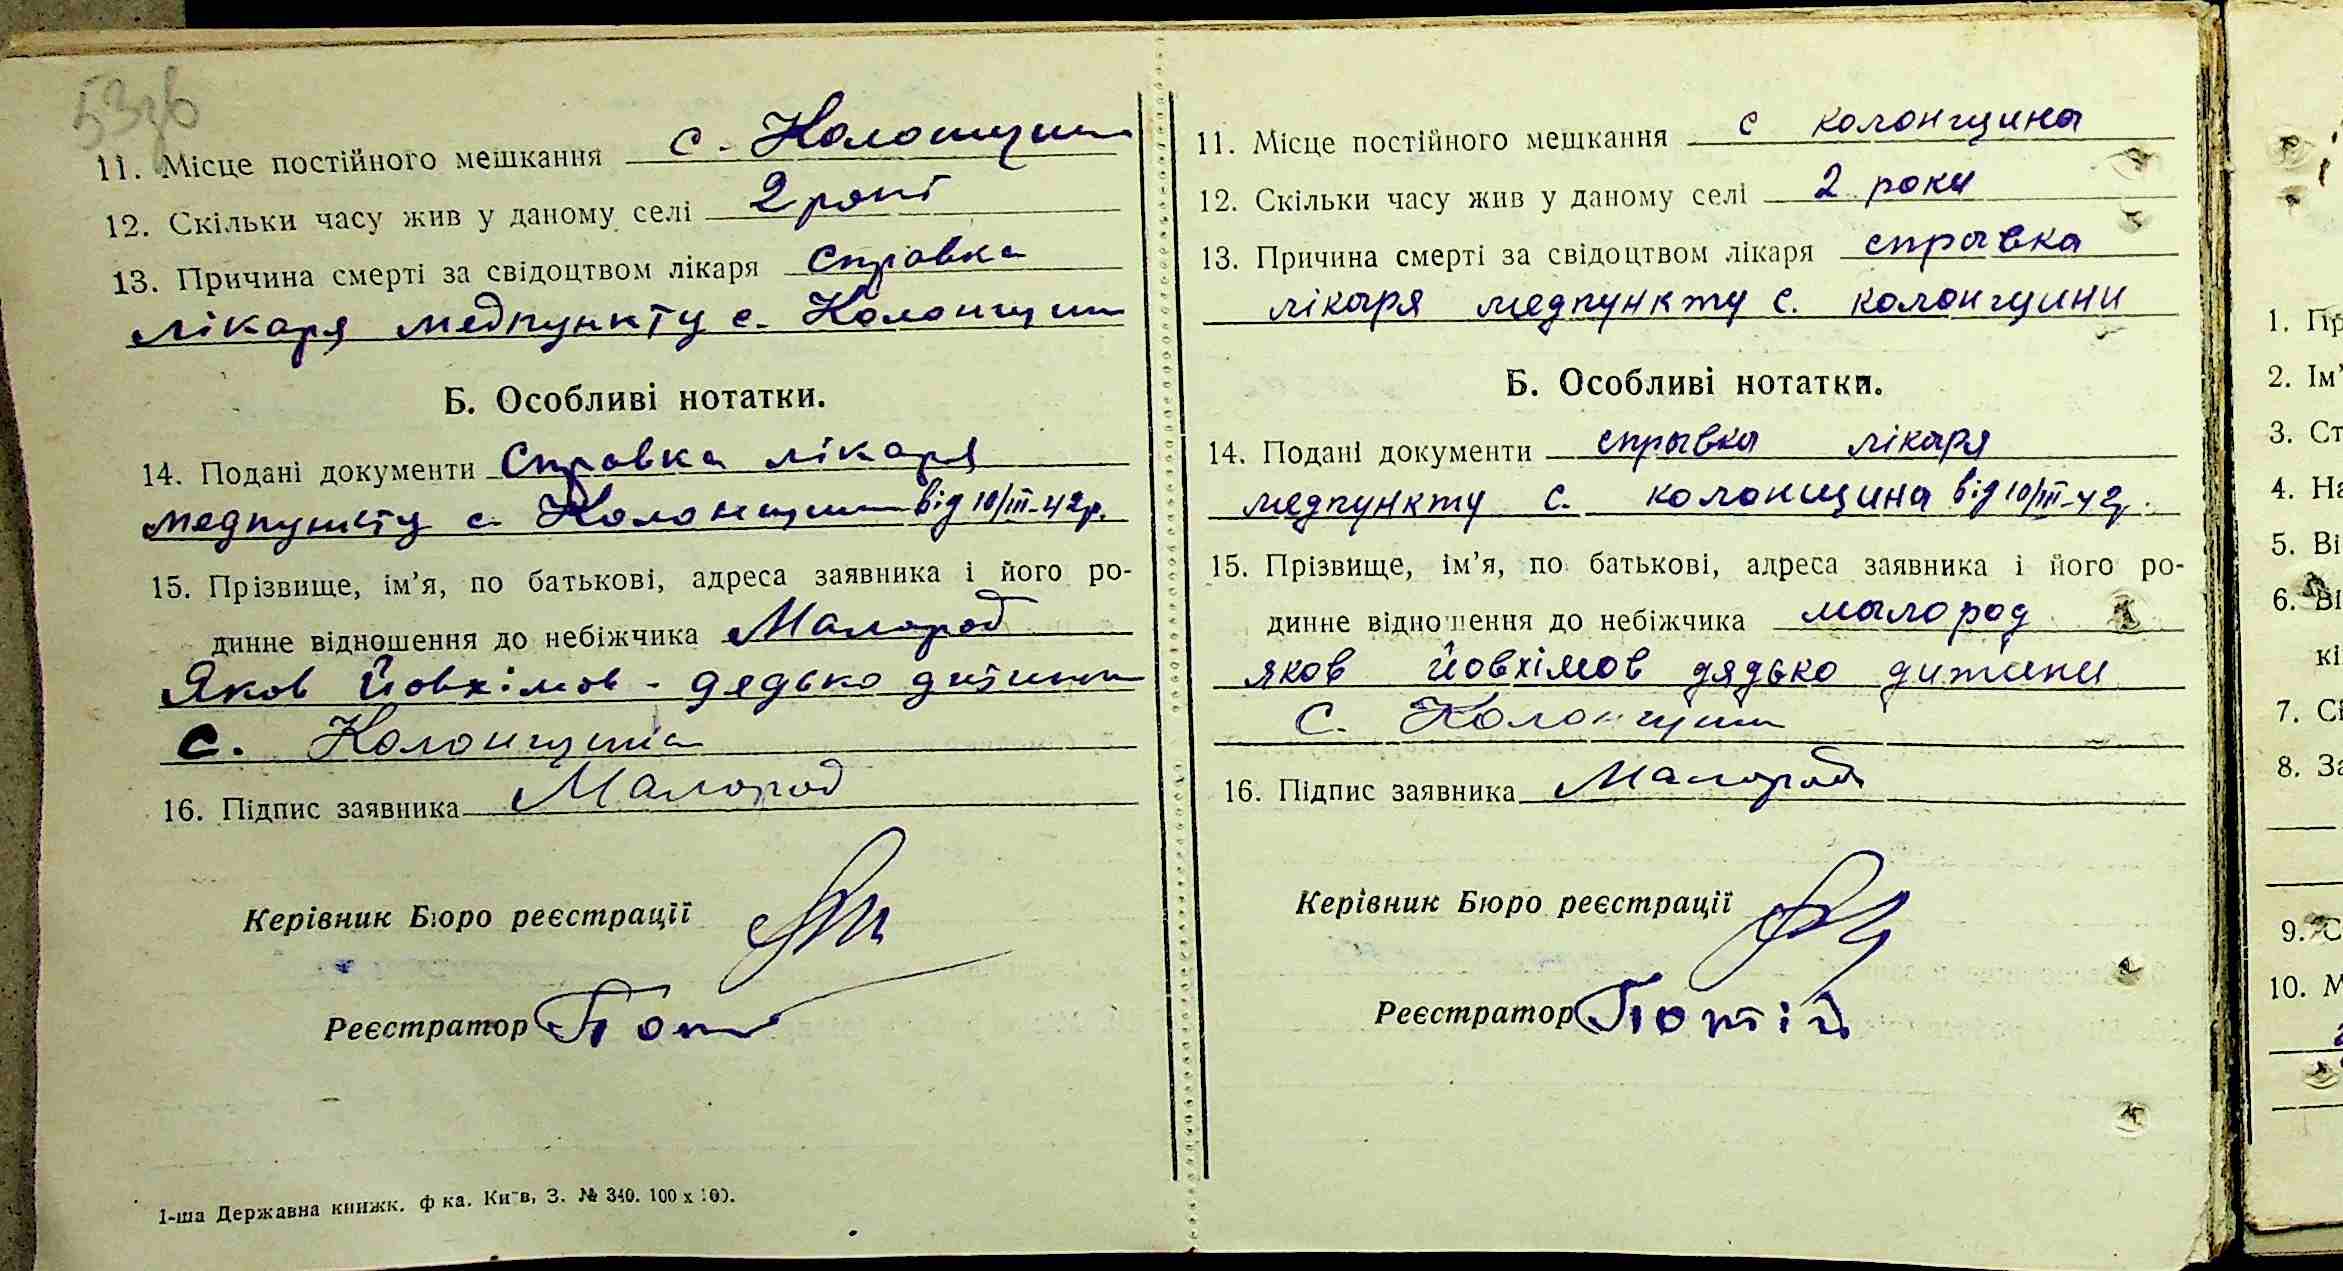 53зв
11. Місце постійного мешкання с. Колонщина
12. Скільки часу жив у даному селі 2 рокі
13. Причина смерті за свідоцтвом лікаря справка
лікаря медпункту с. Колонщини
Б. Особливі нотатки.
14. Подані документи Справка лікаря
медпункту с. Колонщини від 10/III-42р.
15. Прізвище, ім'я, по батькові, адреса заявника і його ро-
динне відношення до небіжчика Малород
Яков Йовхімов - дядько дитини
с. Колонщина
16. Підпис заявника Малород
Керівник Бюро реєстрації
Реєстратор
1-ша Державна книжк. ф ка. Київ, З. № 340. 100 х 100.
11. Місце постійного мешкання с колонщина
12. Скільки часу жив у даному селі 2 роки
13. Причина смерті за свідоцтвом лікаря справка
лікаря медпункту с. колонщини
Б. Особливі нотатки.
14. Подані документи справка лікаря
медпункту с. колонщина від 10/III-42р.
15. Прізвище, ім'я, по батькові, адреса заявника і його ро-
динне відношення до небіжчика малород
яков йовхімов дядько дитини
с. Колонщини
16. Підпис заявника Малород
Керівник Бюро реєстрації
Реєстратор Потій
1. Пр
2. Ім'
3. Ст
4. На
5. Ві
6. Ві
кі
7. Сі
8. За
9. С
10. М